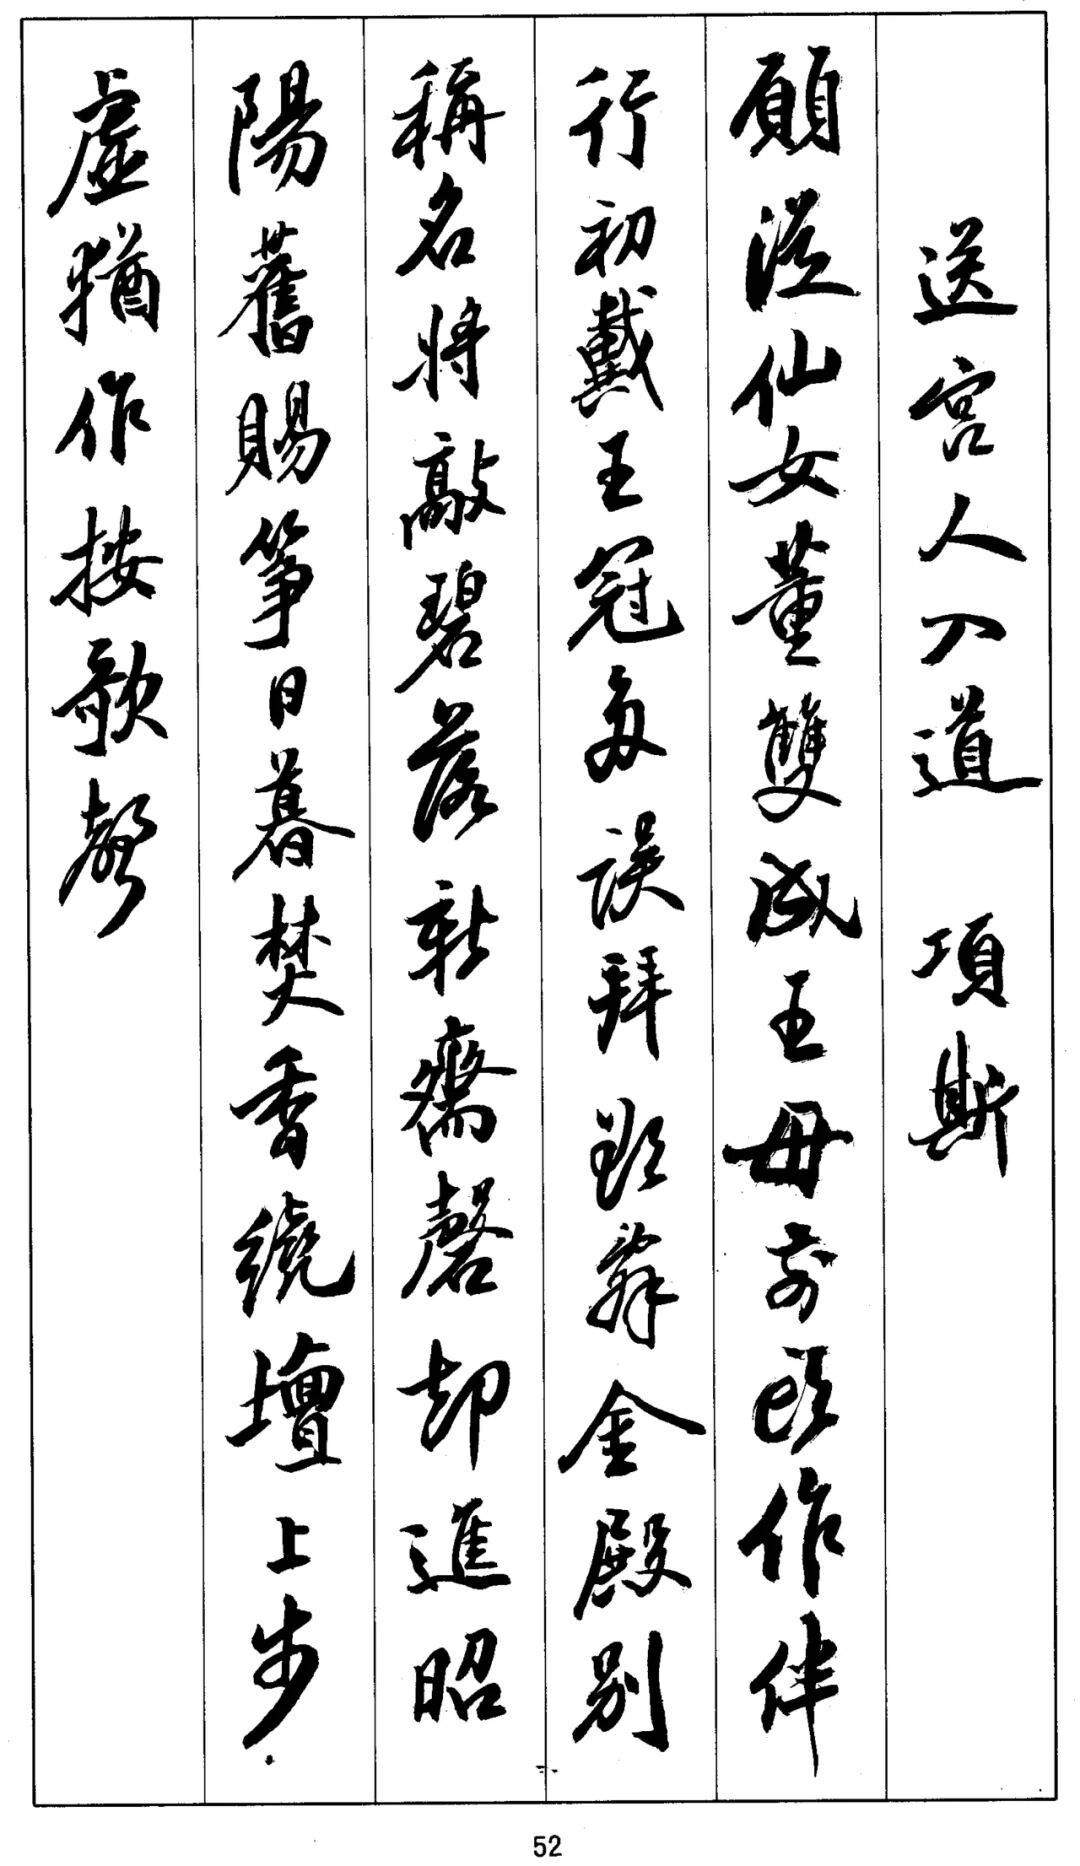 送宮人入道 項斯
願從仙女董雙成王母前頭作伴
行初戴玉冠多誤拜欲辭金殿別
稱名將敲碧落新齋磬却進昭
陽舊賜箏日暮焚香繞壇上步
虛猶作按歌聲
52